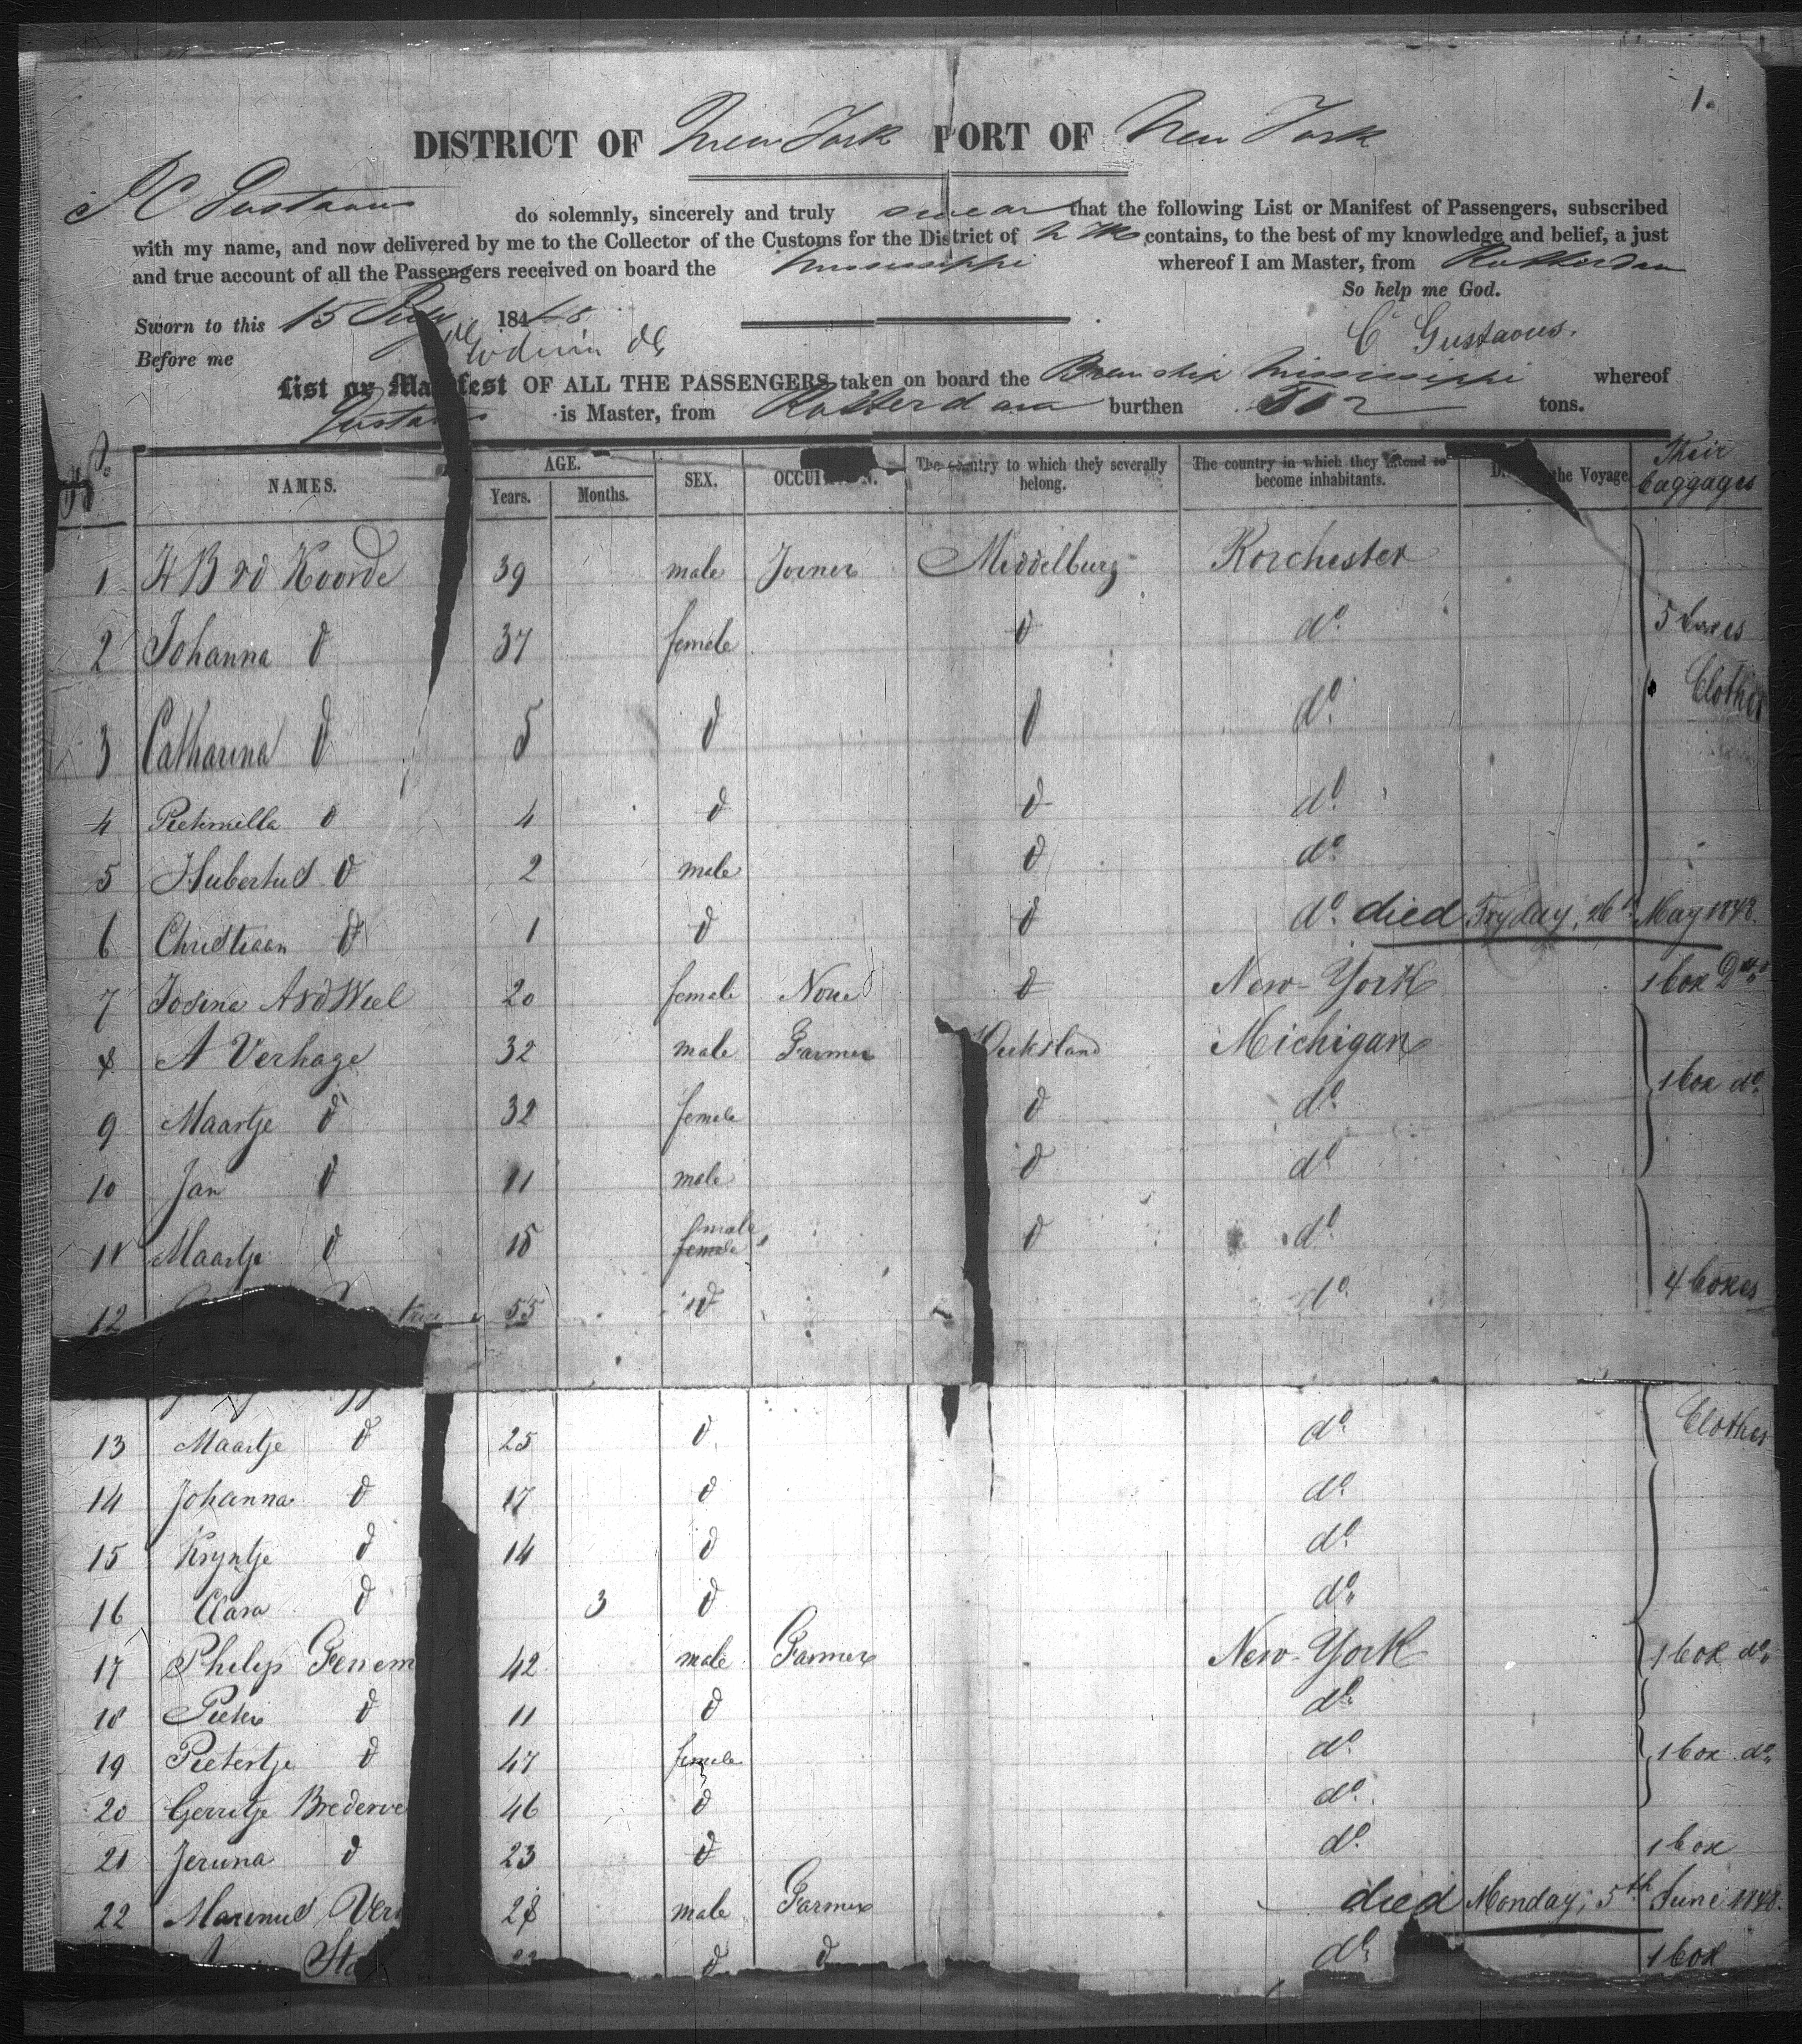 1.
DISTRICT OF New York PORT OF New York
I C Gustavus do solemnly, sincerely and truly swear that the following List or Manifest of Passengers, subscribed
with my name, and now delivered by me to the Collector of the Customs for the District of contains, to the best of my knowledge and belief, a just
and true account of all the Passengers received on board the Mississippi whereof I am Master, from Rotterdam
So help me God.
Sworn to this 15 July 1848
Before me
C Gustavus.
List or Manifest OF ALL THE PASSENGERS taken on board the Brem ship Mississippi whereof
Gustavus is Master, from Rotterdam burthen tons.
No. NAMES. AGE. Years. Months. SEX. OCCUPATION. The country to which they severally belong. The country in which they intend to become inhabitants. the Voyage Their baggages
1 H B v d Koorde 39 male Joiner Middelburg Rorchester
2 Johanna do 37 female do do. 5 boxes
3 Catharina do 5 do do do. Clothes
4 do 4 do do do.
5 Hubertus do 2 male do do.
6 Christiaan do 1 do do do. died Fryday, 26th May 1848.
7 Josina A v d Weel 20 female None do New-York 1 box Do
8 A Verhage 32 male Farmer Dirksland Michigan
9 Maartje do 32 female do do. 1 box do.
10 Jan do 11 male do do
11 Maartje do 18 female female do do.
12 55 do do. 4 boxes
13 Maartje do 25 do do. Clothes
14 Johanna do 17 do do.
15 Kryntje do 14 do do.
16 Clara do 3 do do.
17 Philip Fenem 42 male Farmer New-York 1 box do.
18 Pieter do 11 do do.
19 Pietertje do 47 female do. 1 box do.
20 Gerritje Brederve 46 do do.
21 Jeruna do 23 do do. 1 box
22 Marinus Ver 28 male Farmer died Monday, 5th June 1848.
Sta do do do. 1 box